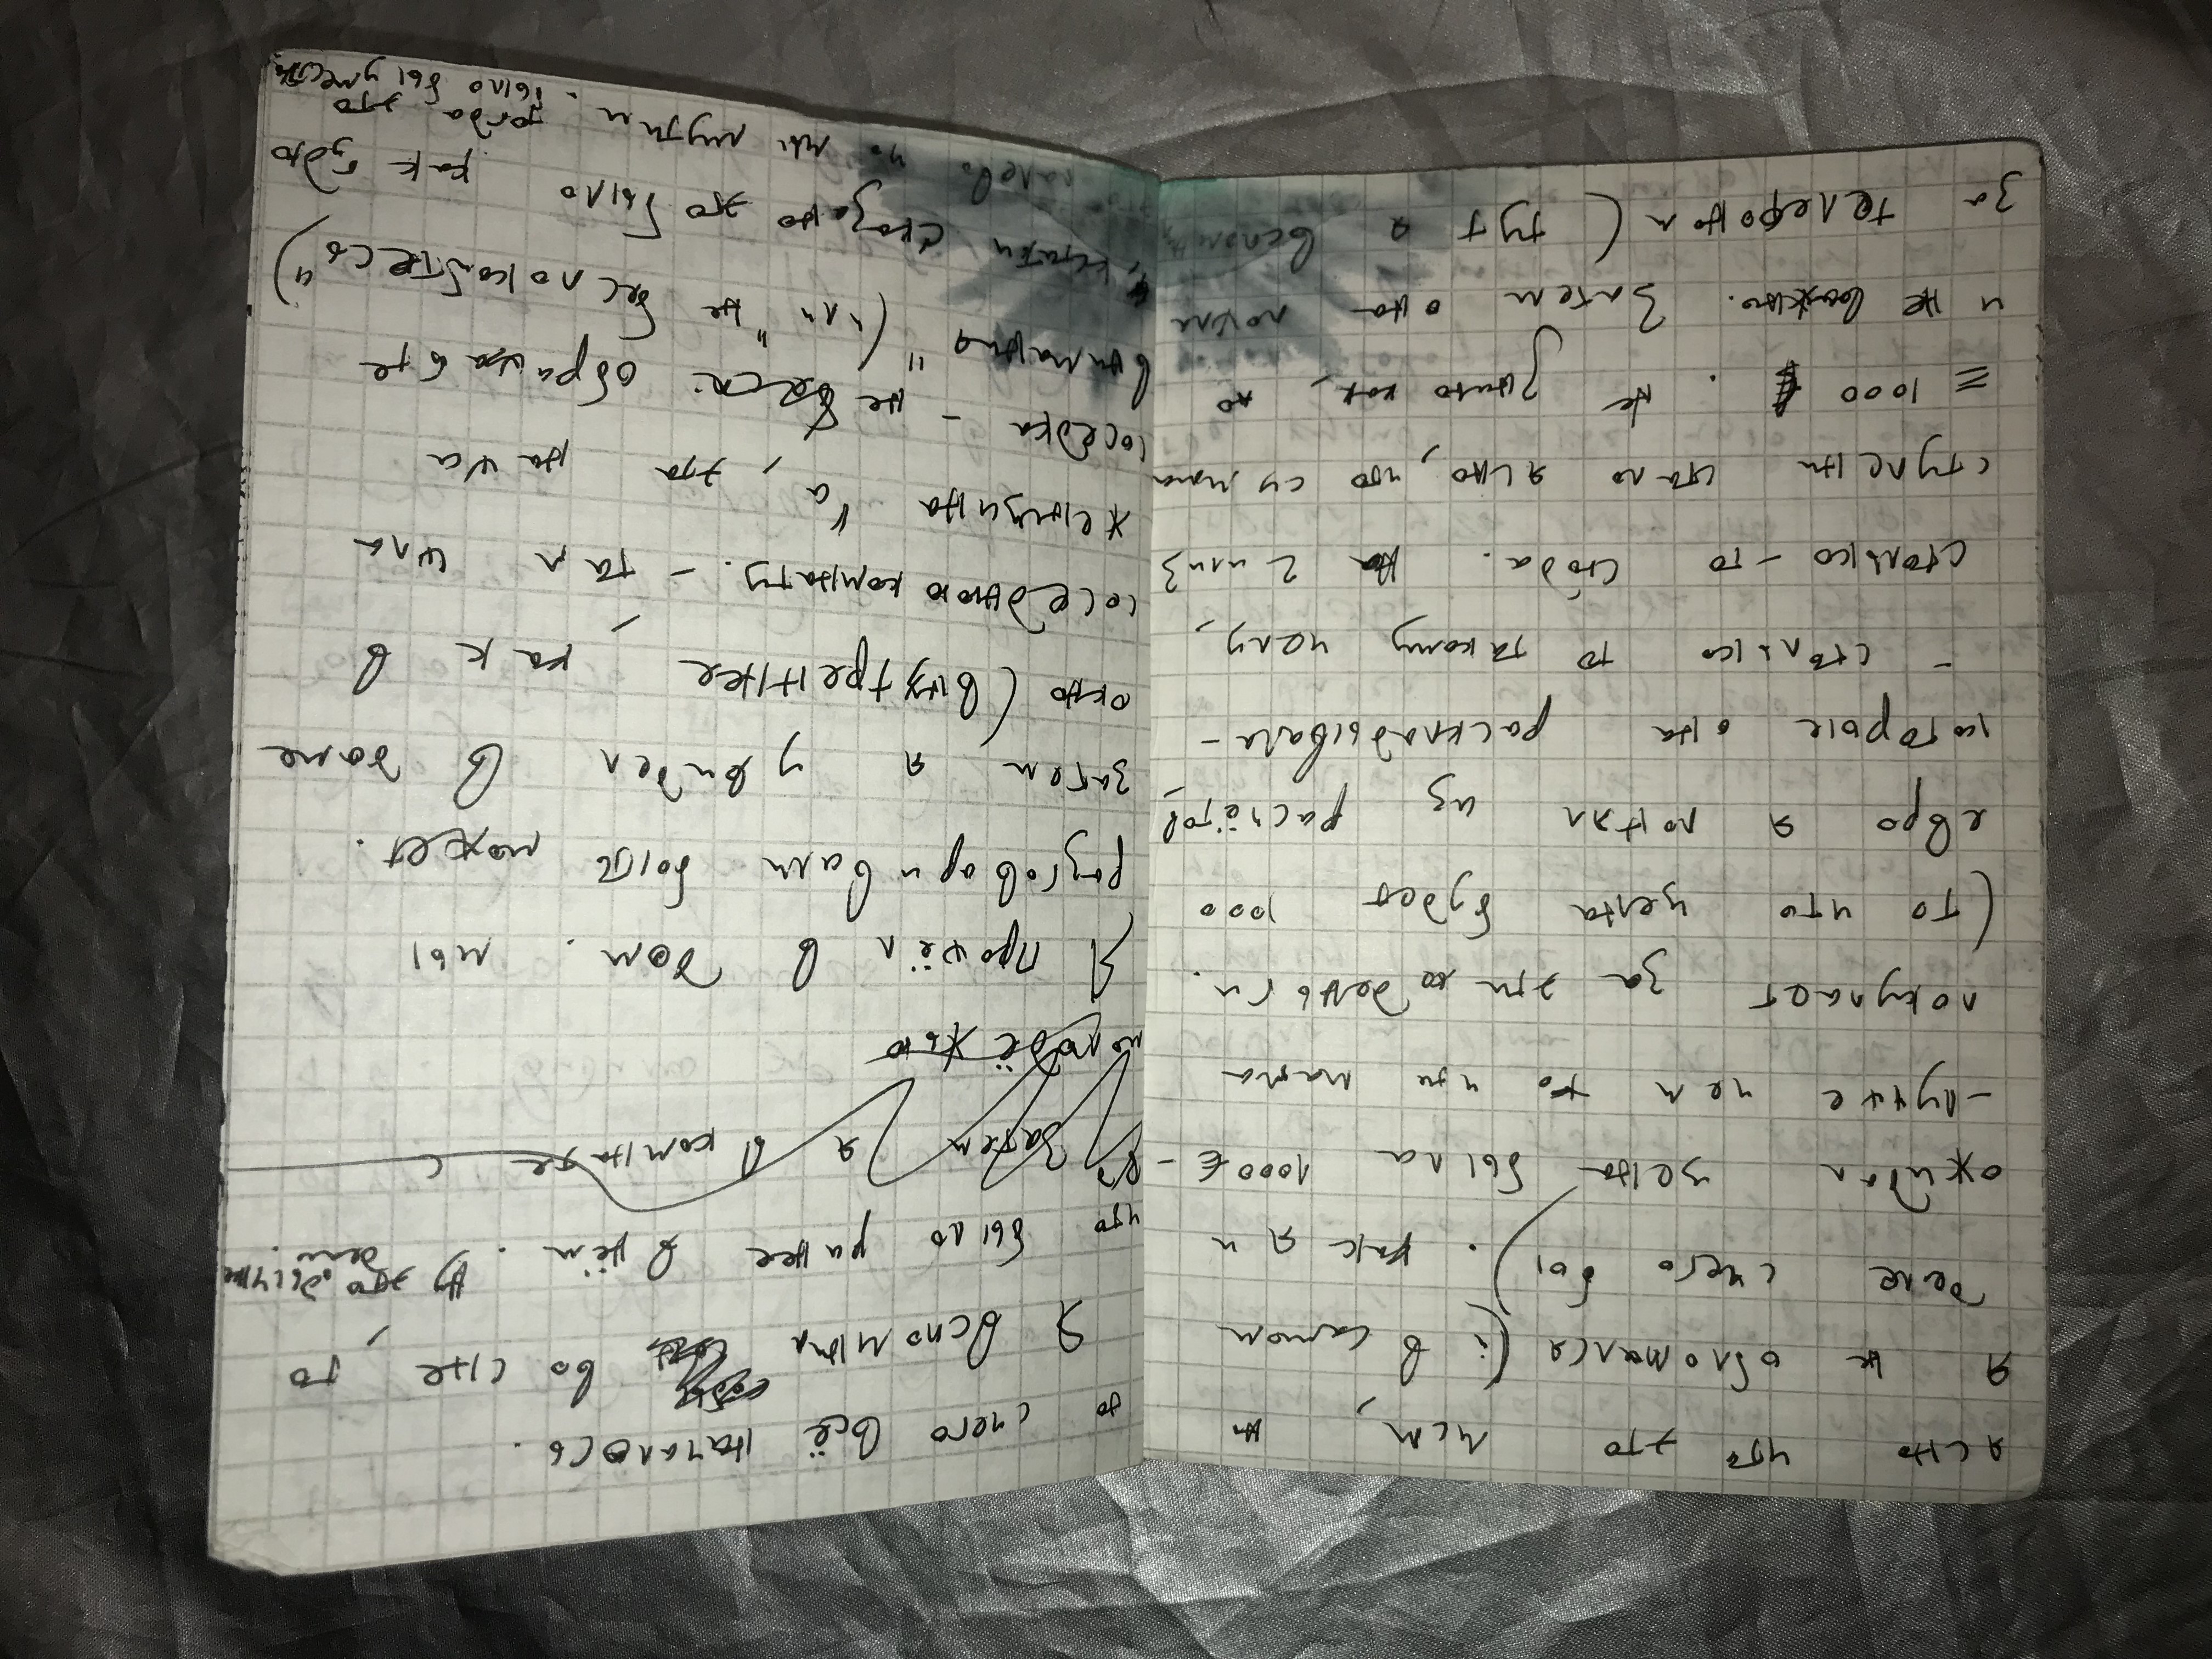 ясно что это мсм, но
я не обломался (: в самом
деле с чего бы). как я и
ожидал цена была 1000 € -
- лучше чем то что мама
покупает за эти деньги.
(то что цена будет 1000
евро я понял из расчётов,
которые она раскладывала -
- столько то такому челу,
столько-то сюда. На 2 или 3
ступени стало ясно, что сумма
≡ 1000 €. Не знаю как, но
и не важно. Затем она пошла
за телефоном (тут я вспомнил
но с чего всё началось.
Я вспомнил во сне, то
что было ранее в нём. Ну это
дело.
Затем я в комнате с
молодёжью
Я прошёл в дом. мы
разговаривали быть может.
затем я увидел в доме
окно (внутреннее, как в
соседнюю комнату. - там шла
женщина "а, эта наша
соседка - не обращайте
внимания" (или "не беспокойтесь")
, кстати сказано это было как будто
палево что мы мутим. тогда это
было бы уместно